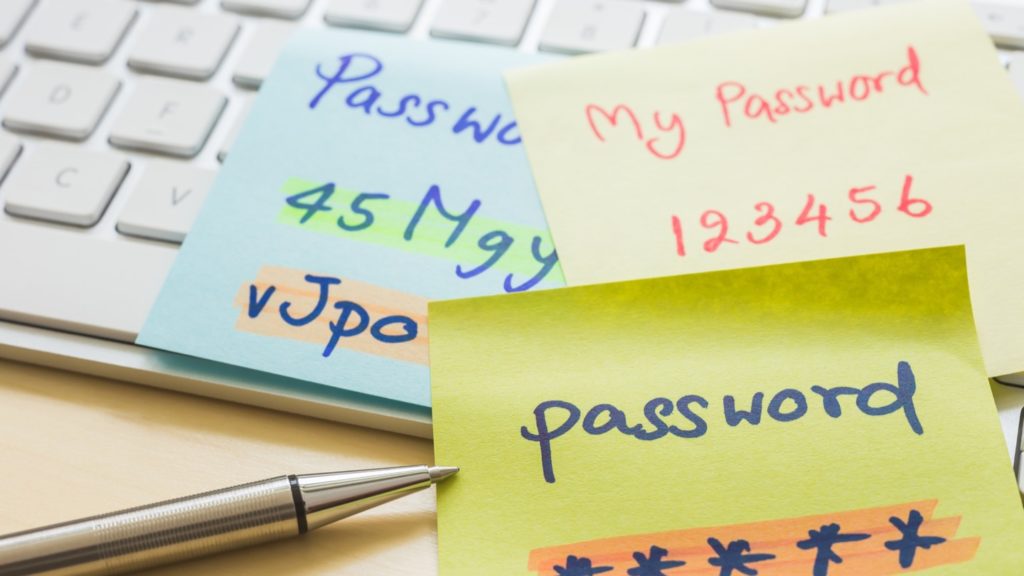 E R
D F
C V
Passwo
45Mgy
vJpo
My Password
123456
password
*****